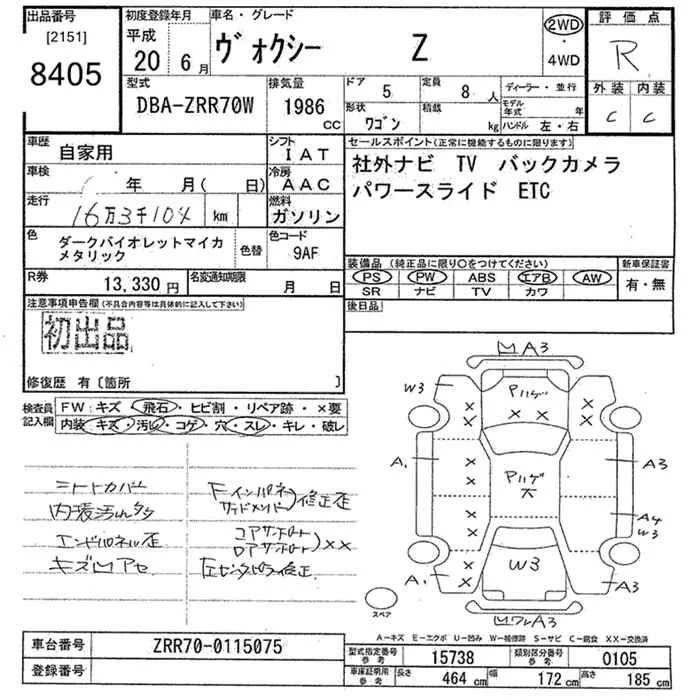 出品番号 初度登録年月 車名・グレード 評価点
[2151] 平成 2WD R
8405 20年 6月 ヴォクシー Z ・ 4WD
型式 排気量 ドア 定員 ディーラー・並行 外装 内装
DBA-ZRR70W 1986 CC 5 8人 モデル年式 年 C C
形状 ワゴン 積載 kg ハンドル 左・右
車歴 自家用 シフト IAT セールスポイント(正常に機能するものに限ります)
車検 年 月( 日) 冷房 AAC 社外ナビ TV バックカメラ
走行 16万3千104 km 燃料 ガソリン パワースライド ETC
色 ダークバイオレットマイカメタリック 色替 色コード 9AF
装備品(純正品に限り○をつけてください) 新車保証書
PS PW ABS エアB AW 有・無
SR ナビ TV カワ
R券 13,330円 名変通知期限 月 日
後日品
注意事項申告欄(不具合内容等は具体的に記入して下さい)
初出品
修復歴 有〔箇所 〕
検査員記入欄 FW:キズ・飛石・ヒビ割・リペア跡・×要
内装:キズ・汚れ・コゲ・穴・スレ・キレ・破レ
シートカバー
内装汚れ多
エンドパネル歪
キズ凹アセ
Fインパネ
サイドメンバー)修正歪
コアサポート
ロアサポート)××
左センタピラ修正
凹A3
W3 Pハゲ
× × × ×
A. × Pハゲ A3
× 大
× A4
W3
A. × W3 A3
×
スペア 凹ワレA3
A-キズ E-エクボ U-凹み W-補修跡 S-サビ C-腐食 XX-交換済
車台番号 ZRR70-0115075
登録番号
型式指定番号 参考 15738 類別区分番号 参考 0105
車庫証明用 参考 長さ 464 cm 幅 172 cm 高さ 185 cm